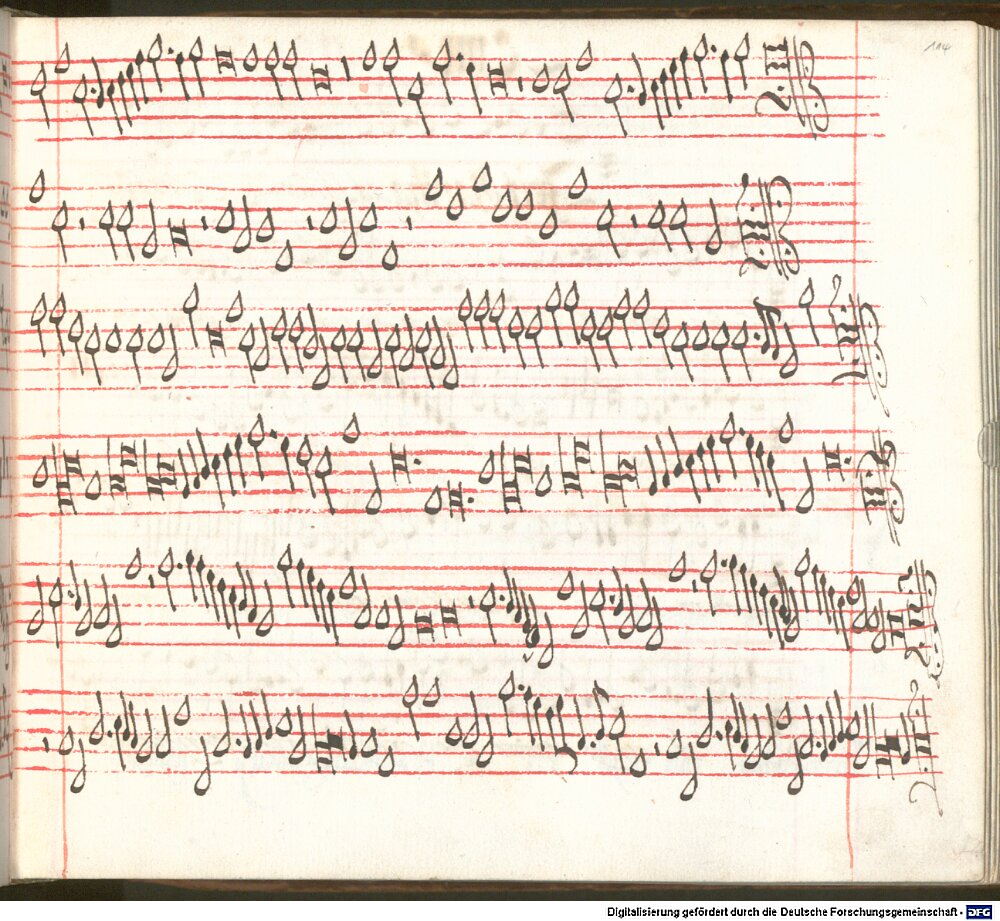 114
Digitalisierung gefördert durch die Deutsche Forschungsgemeinschaft - DFG